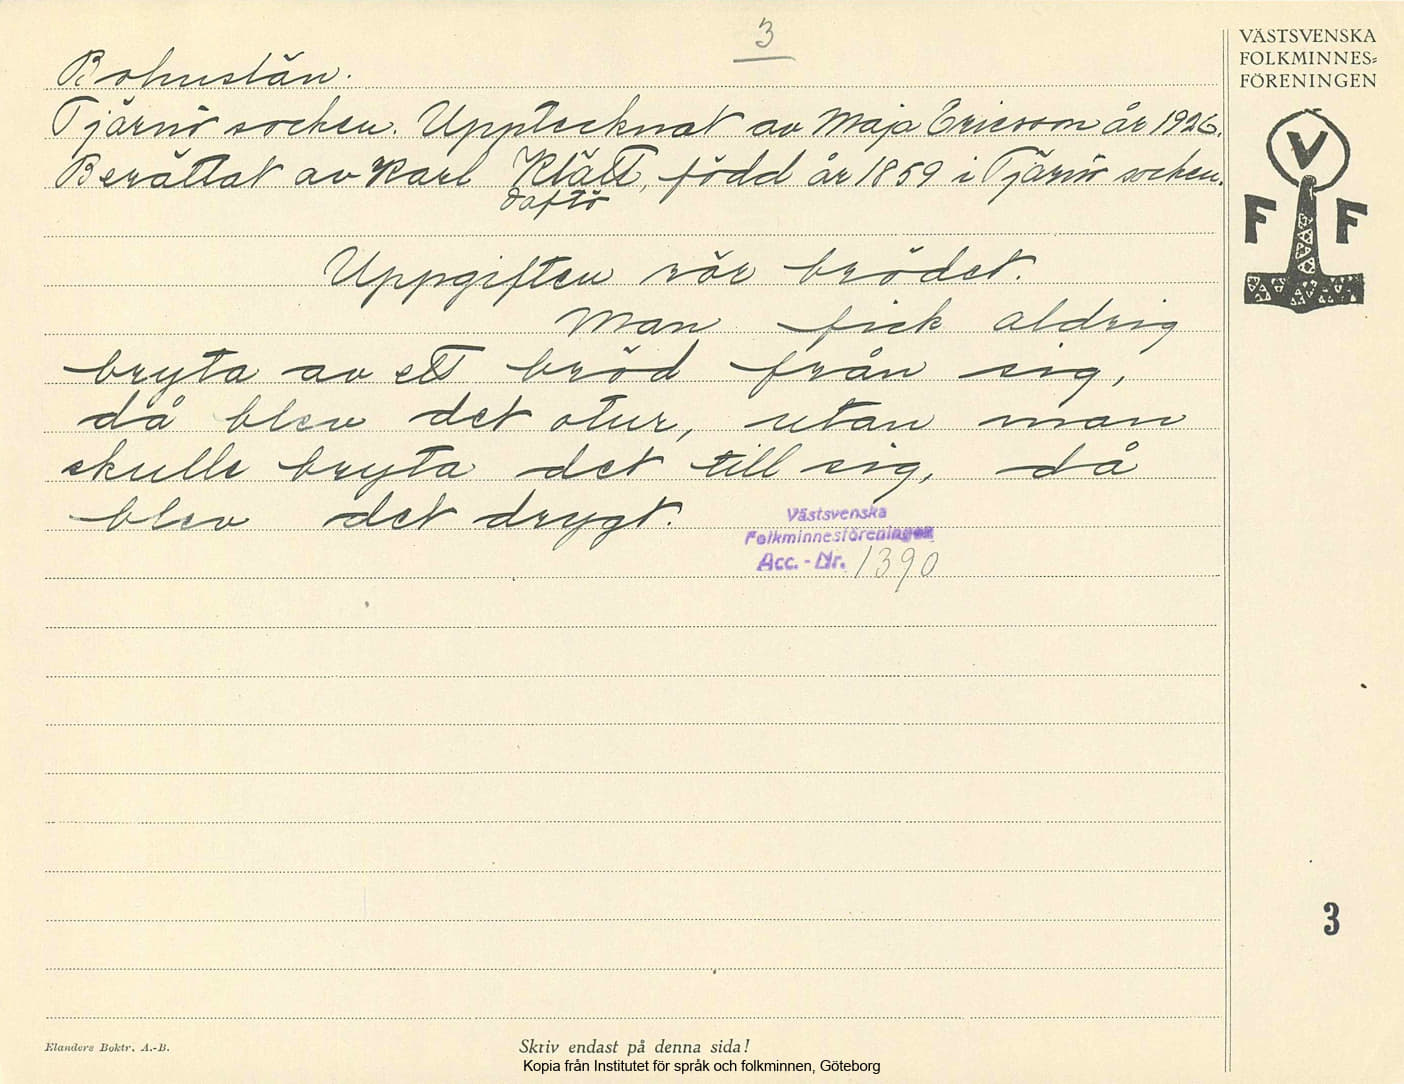 3
VÄSTSVENSKA
FOLKMINNES=
FÖRENINGEN
V
F F
Bohuslän.
Tjärnö socken. Upptecknat av Maja Ericson år 1926.
Berättat av Karl Klätt, född år 1859 i Tjärnö socken.
Daftö
Uppgiften rör brödet.
Man fick aldrig
bryta av ett bröd från sig,
då blev det otur, utan man
skulle bryta det till sig, då
blev det drygt.
Västsvenska
Folkminnesföreningen
Acc. - Nr. 1390
3
Elanders Boktr. A.-B.
Skriv endast på denna sida!
Kopia från Institutet för språk och folkminnen, Göteborg